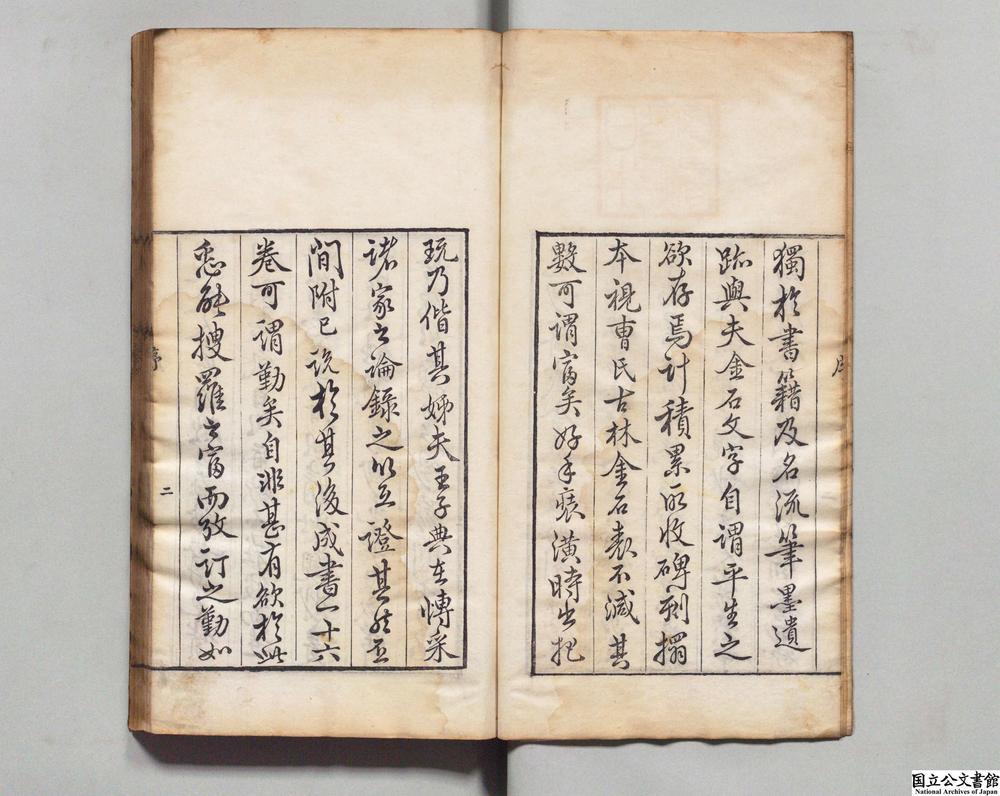 獨於書籍及名流筆墨遺
跡與夫金石文字自謂平生之
欲存焉計積累所收碑刻搨
本視曹氏古林金石表不減其
數可謂富矣好手裝潢時出把
玩乃偕其姊夫王子典在慱采
諸家之論錄之以互證其然否
間附己說於其後成書一十六
卷可謂勤矣自非甚有欲於此
惡能搜羅之富而攷訂之勤如
序
二
国立公文書館
National Archives of Japan